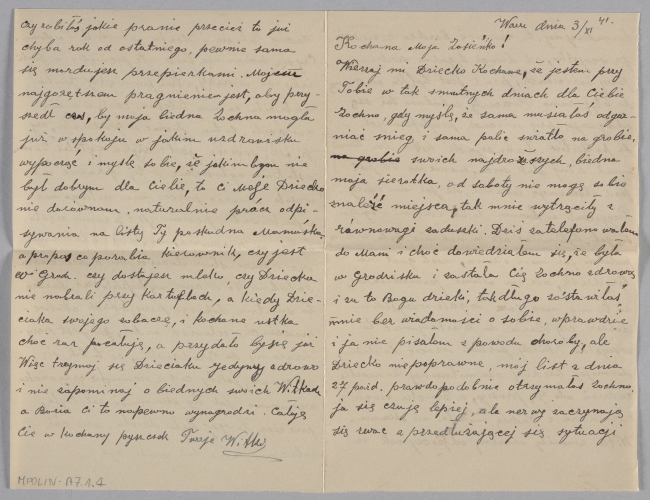 Wawa dnia 3/XI 41.
Kochana Moja Zosieńko!
Wierzaj mi Dziecko Kochane, że jestem przy
Tobie w tak smutnych dniach dla Ciebie
Zochno, gdy myślę, że sama musiałaś odgar-
niać śnieg i sama palić światło na grobie,
na grobie swoich najdroższych, biedna
moja sierotka, od soboty nie mogę sobie
znaleźć miejsca, tak mnie wytrąciły z
równowagi zaduszki. Dziś zatelefonowałem
do Mani i choć dowiedziałem się, że była
w Grodzisku i zastała Cię Zochno zdrową
i za to Bogu dzięki, tak długo zostawiłaś
mnie bez wiadomości o sobie, wprawdzie
i ja nie pisałem z powodu choroby, ale
Dziecko niepoprawne, mój list z dnia
27 paźd. prawdopodobnie otrzymałaś Zochno.
ja się czuję lepiej, ale nerwy zaczynają
się rwać z przedłużającej się sytuacji
czy robiłaś jakie pranie przecież to już
chyba rok od ostatniego, pewnie sama
się mordujesz przepierkami. Mojem
najgorętszem pragnieniem jest, aby przy-
szedł czas, by moja biedna Zochna mogła
już w spokoju w jakim uzdrowisku
wypocząć i myślę sobie, że jakim bym nie
był dobrym dla Ciebie, to Ci Moje Dziecko
nie dorównam, naturalnie prócz odpi-
sywania na listy Ty paskudna Mamuśka,
a propos co porabia kierownik, czy jest
w Grodz. czy dostajesz mleko, czy Dziecka
nie nabrali przy kartoflach, a kiedy Dzie-
ciaka swojego zobaczę, i kochane ustka
choć raz pocałuję, a przydało by się już
Więc trzymaj się Dzieciaku jedyny zdrowo
i nie zapominaj o biednych swoich Witkach
a Bozia Ci to napewno wynagrodzi. Całuję
Cię w kochany pyszczek Twoje Witki
MPOLIN-A7.1.4